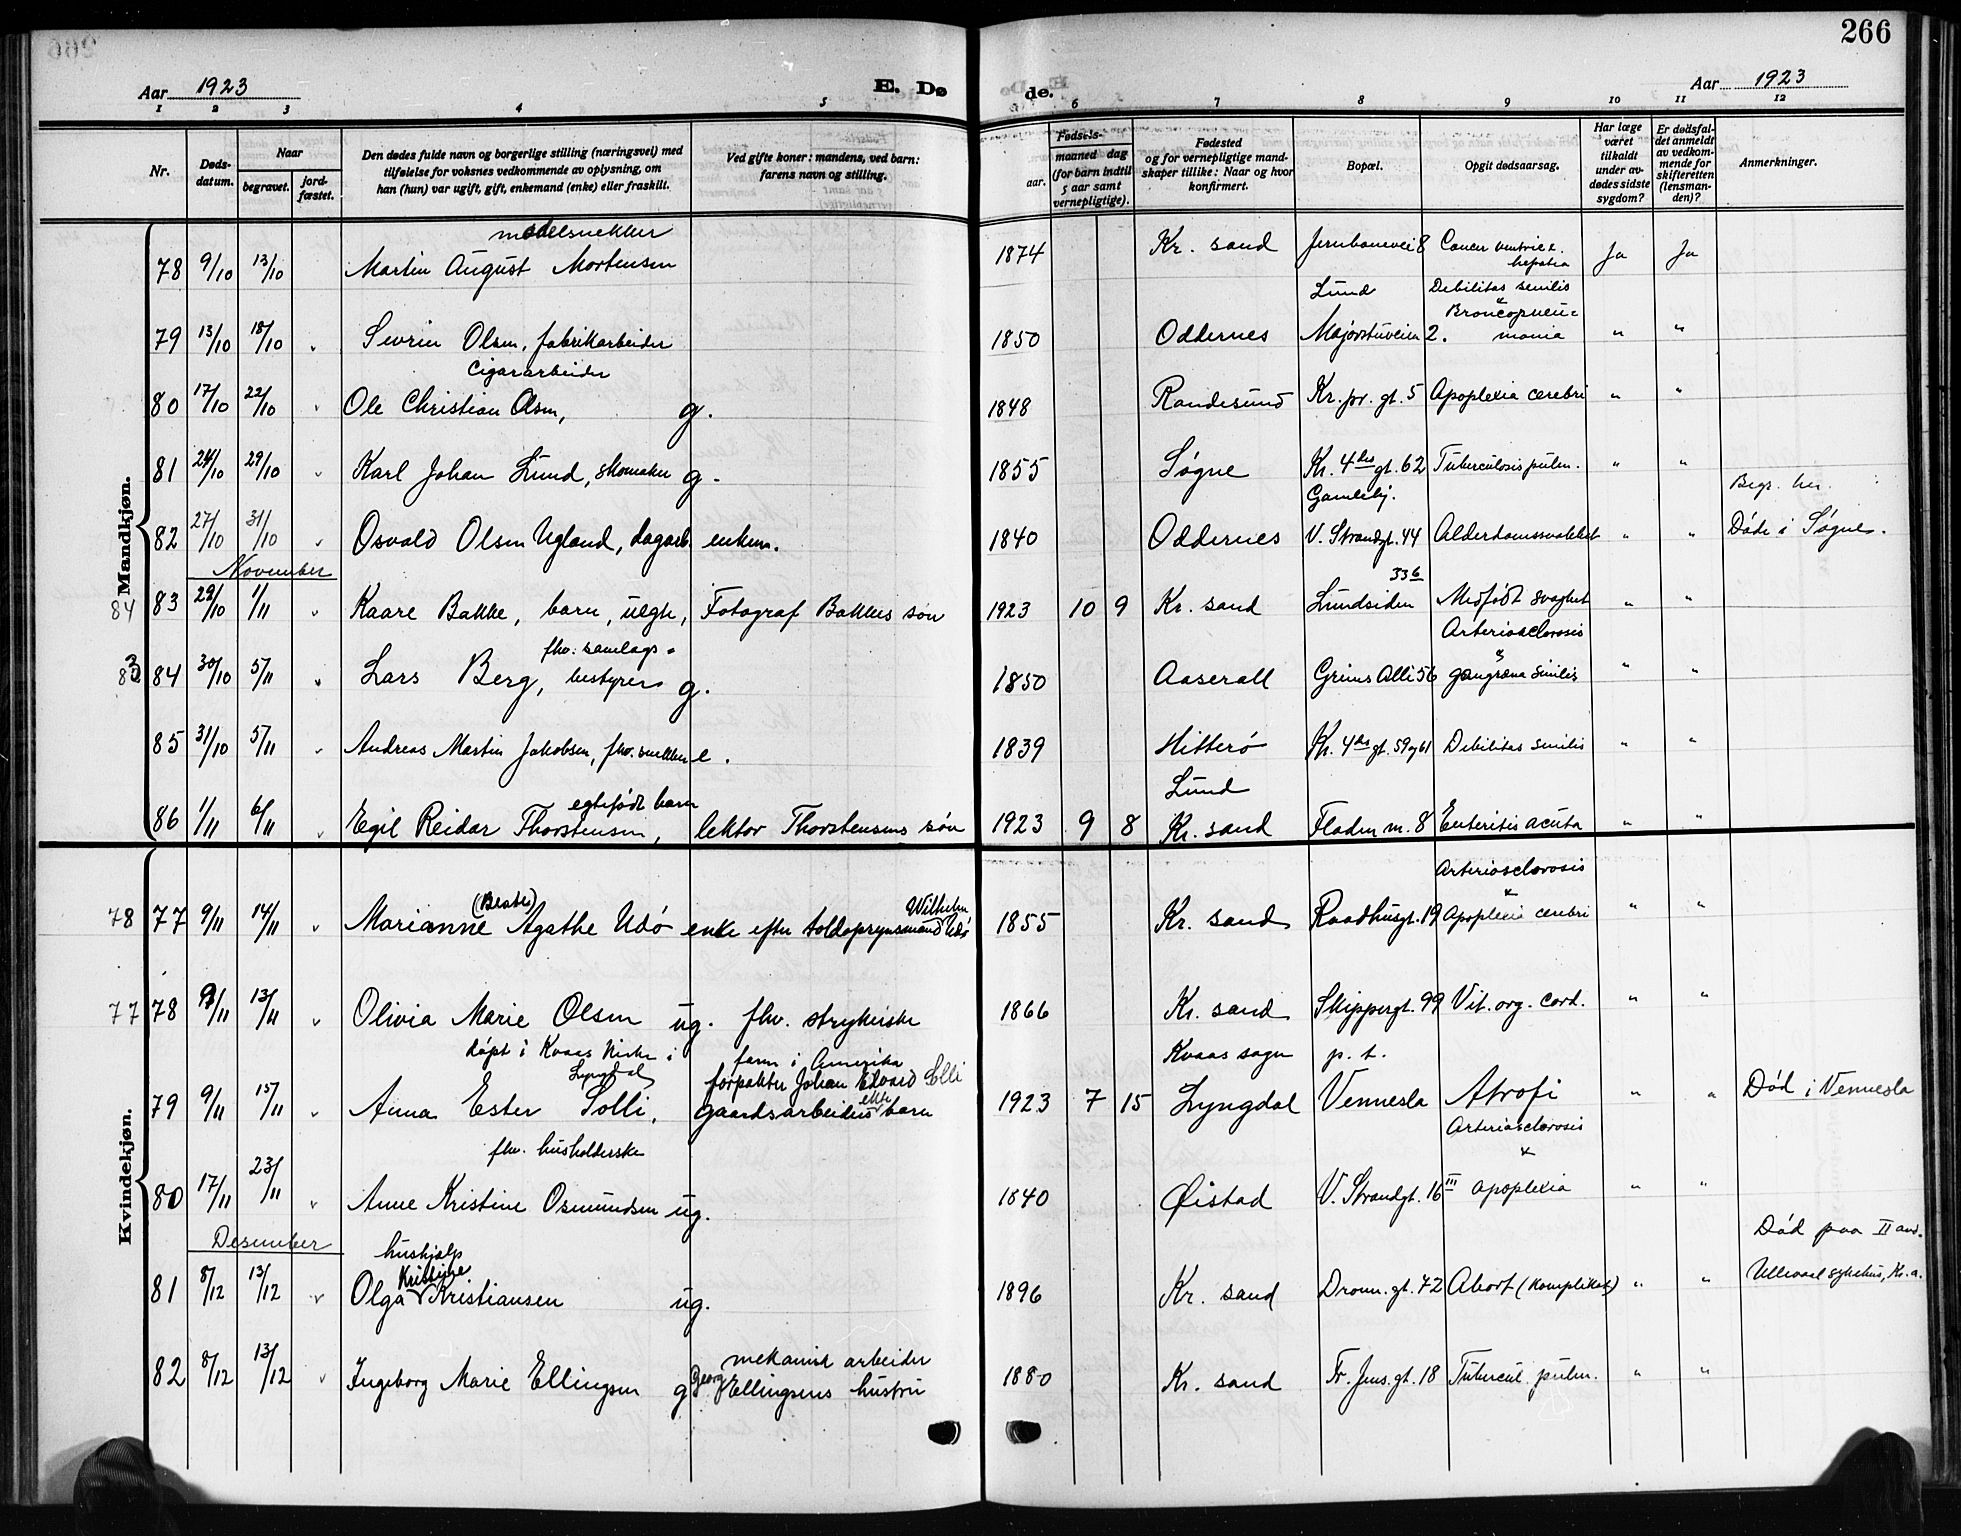 266
Aar 1923 E. Døde. Aar 1923
1 2 3 4 5 6 7 8 9 10 11 12
Nr.
Døds-
datum.
Naar
begravet.
jord-
fæstet.
Den dødes fulde navn og borgerlige stilling (næringsvei) med
tilføielse for voksnes vedkommende av oplysning, om
han (hun) var ugift, gift, enkemand (enke) eller fraskilt.
Ved gifte koner: mandens, ved barn:
farens navn og stilling.
Fødsels-
aar.
maaned dag
(for barn indtil
5 aar samt
vernepligtige).
Fødested
og for vernepligtige mand-
skaper tillike: Naar og hvor
konfirmert.
Bopæl.
Opgit dødsaarsag.
Har læge
været
tilkaldt
under av-
dødes sidste
sygdom?
Er dødsfal-
det anmeldt
av vedkom-
mende for
skifteretten
(lensman-
den)?
Anmerkninger.
Mandkjøn.
modelsnekker
78 9/10 13/10 Martin August Mortensen 1874 Kr. sand Jernbanevei 8 Cancer ventric. & hepatis Ja Ja
Lund Debilitas senilis
& Broncopneu=
79 13/10 18/10 Sevrin Olsen, fabrikarbeider 1850 Oddernes Majorstuveien 2. monia " "
Cigararbeider
80 17/10 22/10 Ole Christian Olsen, g. 1848 Randesund Kr. pr. gt. 5 Apoplexia cerebri " "
81 24/10 29/10 Karl Johan Lund, skomaker g. 1855 Søgne Kr. 4des gt. 62 Tuberculosis pulm. " "
Gamlehj. Begr. her.
82 27/10 31/10 Osvald Olsen Ugland, dagarb. enkem. 1840 Oddernes V. Strandgt. 44 Alderdomssvakket " " Døde i Søgne.
November
84 83 29/10 1/11 Kaare Bakke, barn, uegte, Fotograf Bakkes søn 1923 10 9 Kr. sand Lundsiden 336 Medfødt svaghet " "
fhv. samlags- Arteriosclerosis
83 84 30/10 5/11 Lars Berg, bestyrer g. 1850 Aaserall Grims Allé 56 & gangræna senilis " "
85 31/10 5/11 Andreas Martin Jakobsen, fhv. snekker e. 1839 Hitterø Kr. 4des gt. 59 og 61 Debilitas senilis " "
egtefødt barn Lund
86 1/11 6/11 Egil Reidar Thorstensen, lektor Thorstensens søn 1923 9 8 Kr. sand Fladen m. 8 Enteritis acuta " "
Kvindekjøn.
(Beate) Wilhelm Arteriosclerosis
78 77 9/11 14/11 Marianne Agathe Udø enke efter toldopsynsmand Udø 1855 Kr. sand Raadhusgt. 19 & Apoplexia cerebri " "
77 78 9/11 13/11 Olivia Marie Olsen ug. fhv. strykerske 1866 Kr. sand Skippergt. 99 Vit. org. cord. " "
døpt i Kvaas kirke i Lyngdal farm i Amerika Kvaas sogn p. t.
forpakter Johan Edvard Solli
79 9/11 15/11 Anna Ester Solli, gaardsarbeiders ekte barn 1923 7 15 Lyngdal Vennesla Atrofi " " Død i Vennesla
fhv. husholderske Arteriosclerosis
80 17/11 23/11 Anne Kristine Osmundsen ug. 1840 Øistad V. Strandgt. 16 III & apoplexia " "
Desember
hushjælp Død paa II avd.
81 8/12 13/12 Olga Kristine Kristiansen ug. 1896 Kr. sand Dronn. gt. 72 Abort (komplikat) " " Ullevaal sykehus, Kr.a.
mekanisk arbeider
82 8/12 13/12 Ingeborg Marie Ellingsen g Georg Ellingsens hustru 1880 Kr. sand Fr. Jens. gt. 18 Tubercul. pulm. " "